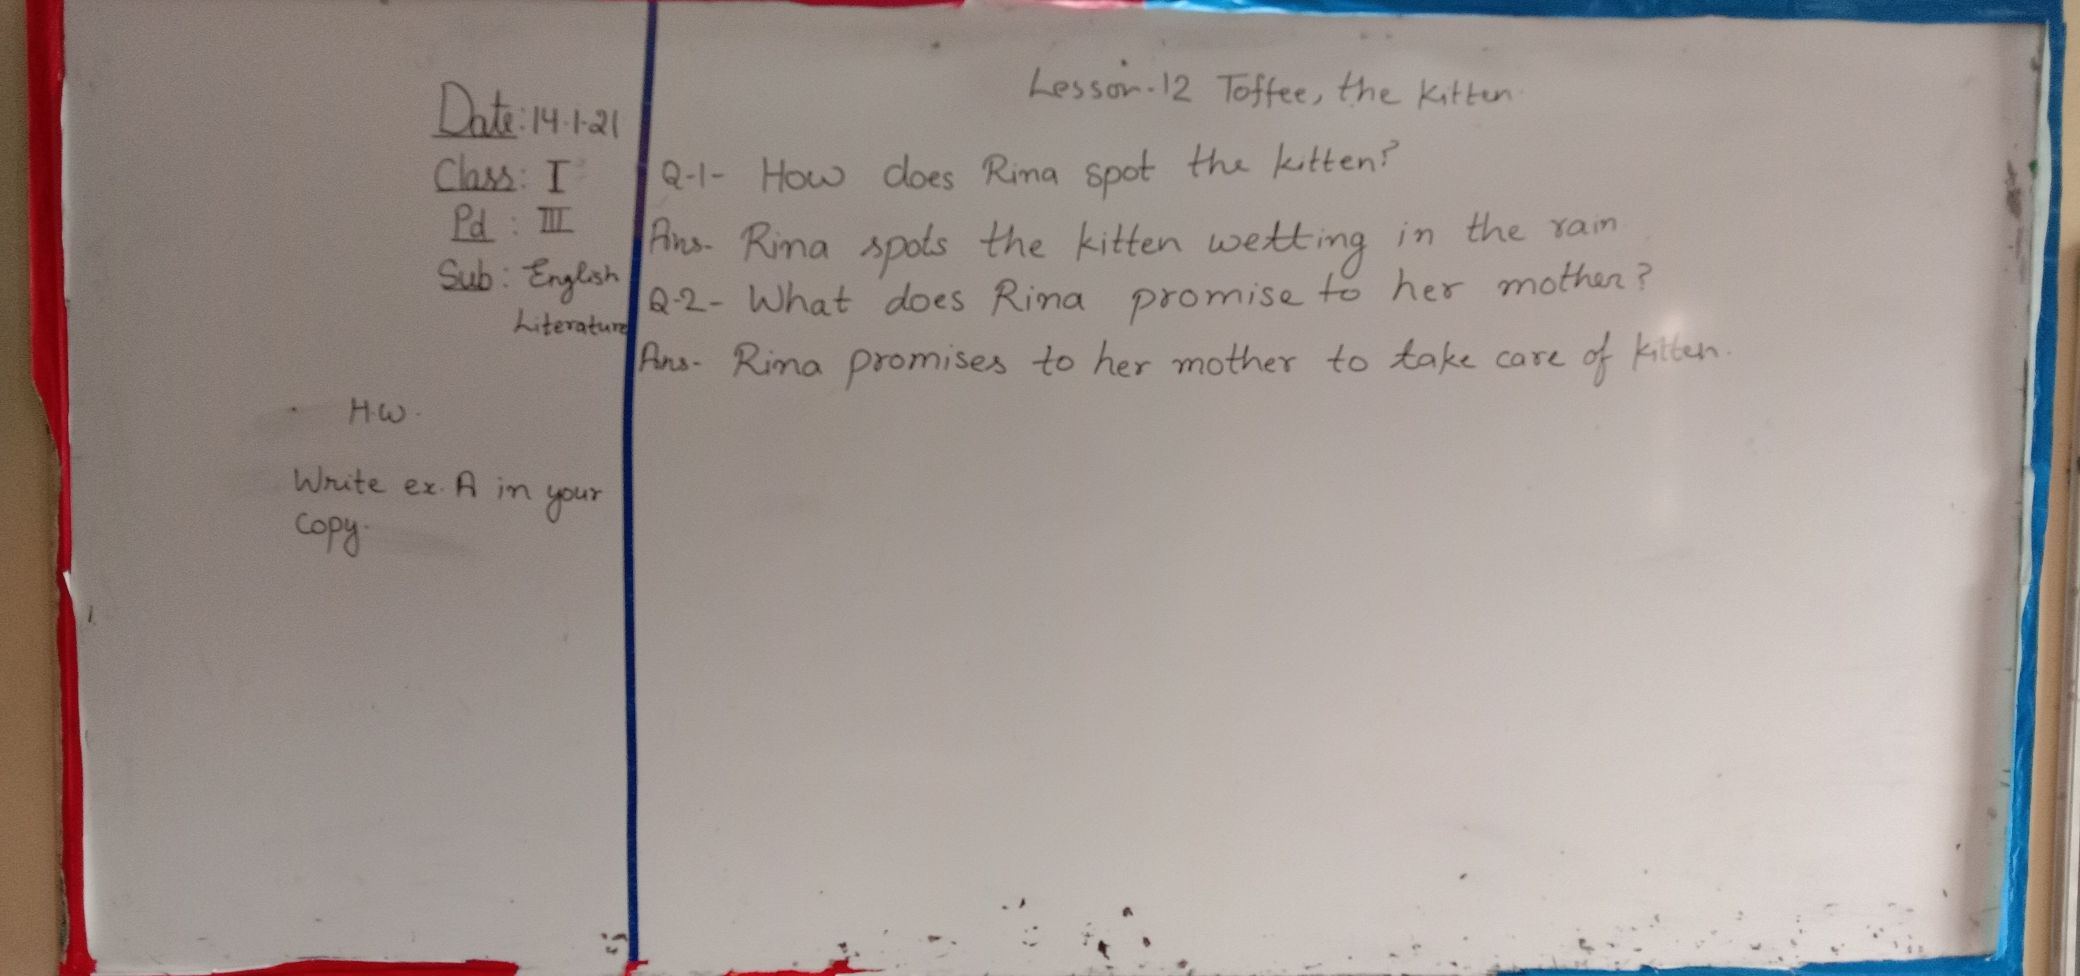 Date: 14.1.21
Class: I
Pd : III
Sub : English
Literature
H.W.
Write ex. A in your
copy.
Lesson-12 Toffee, the kitten
Q-1- How does Rina spot the kitten?
Ans- Rina spots the kitten wetting in the rain.
Q-2- What does Rina promise to her mother?
Ans- Rina promises to her mother to take care of kitten.